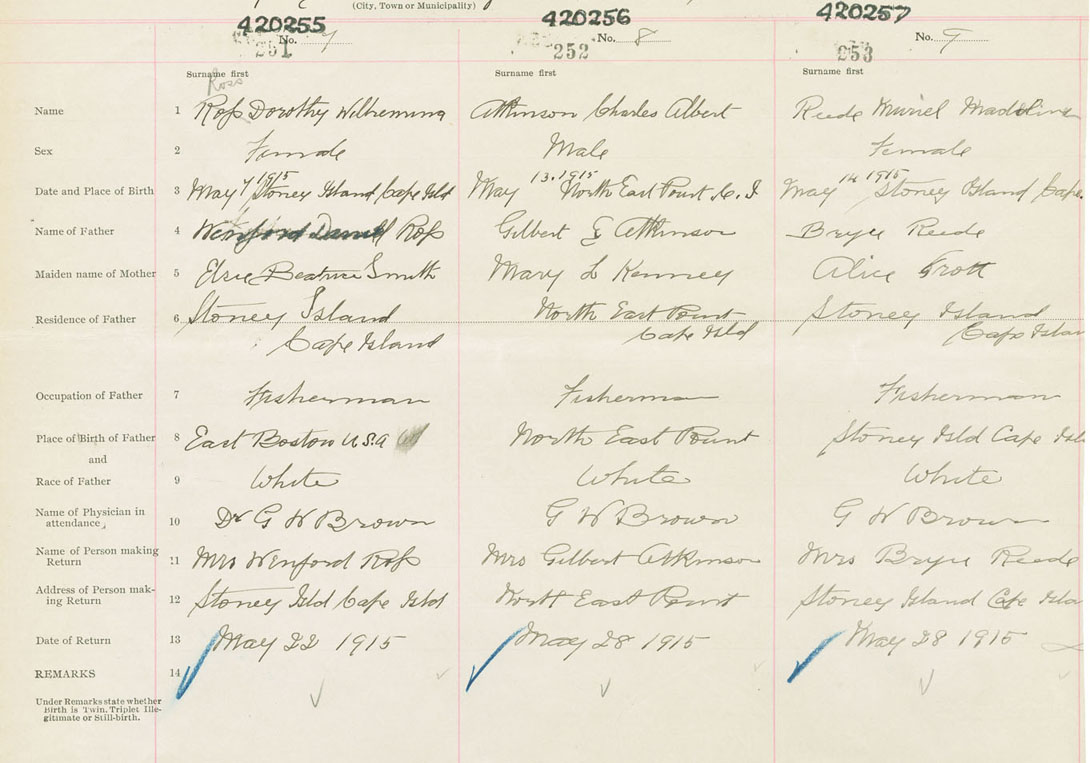 (City, Town or Municipality)
420255 420256 420257
251 No. 7 252 No. 8 253 No. 9
Surname first Surname first Surname first
Ross
Name 1 Ross Dorothy Wilhemina Atkinson Charles Albert Reede Muriel Maddline
Sex 2 Female Male Female
Date and Place of Birth 3 May 7 1915 Stoney Island Cape Isld May 13. 1915 North East Point C. I May 14 1915 Stoney Island Cape
Name of Father 4 Wenford Daniel Ross Gilbert E Atkinson Bryce Reede
Maiden name of Mother 5 Elsie Beatrice Smith Mary L Kenney Alice Trott
Residence of Father 6 Stoney Island North East Point Stoney Island
Cape Island Cape Isld Cape Islan
Occupation of Father 7 Fisherman Fisherman Fisherman
Place of Birth of Father 8 East Boston U.S.A North East Point Stoney Isld Cape Isl
and
Race of Father 9 White White White
Name of Physician in
attendance, 10 Dr G W Brown G W Brown G W Brown
Name of Person making
Return 11 Mrs Wenford Ross Mrs Gilbert Atkinson Mrs Bryce Reede
Address of Person mak-
ing Return 12 Stoney Isld Cape Isld North East Point Stoney Island Cape Isla
Date of Return 13 May 22 1915 May 28 1915 May 28 1915
REMARKS 14
Under Remarks state whether
Birth is Twin, Triplet Ille-
gitimate or Still-birth.